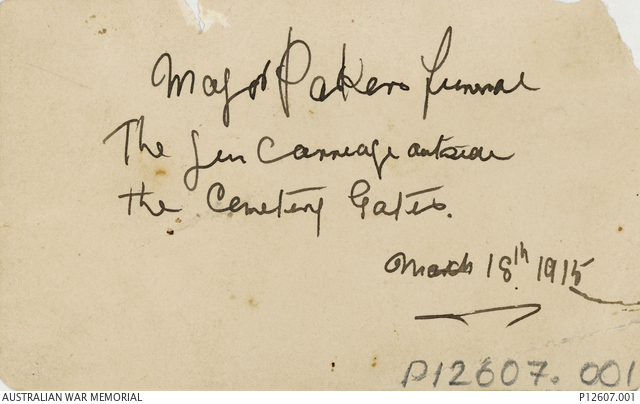 Major Pakers funeral
The gun Carriage outside
the Cemetery Gates.
March 18th 1915
P12607.001
AUSTRALIAN WAR MEMORIAL P12607.001